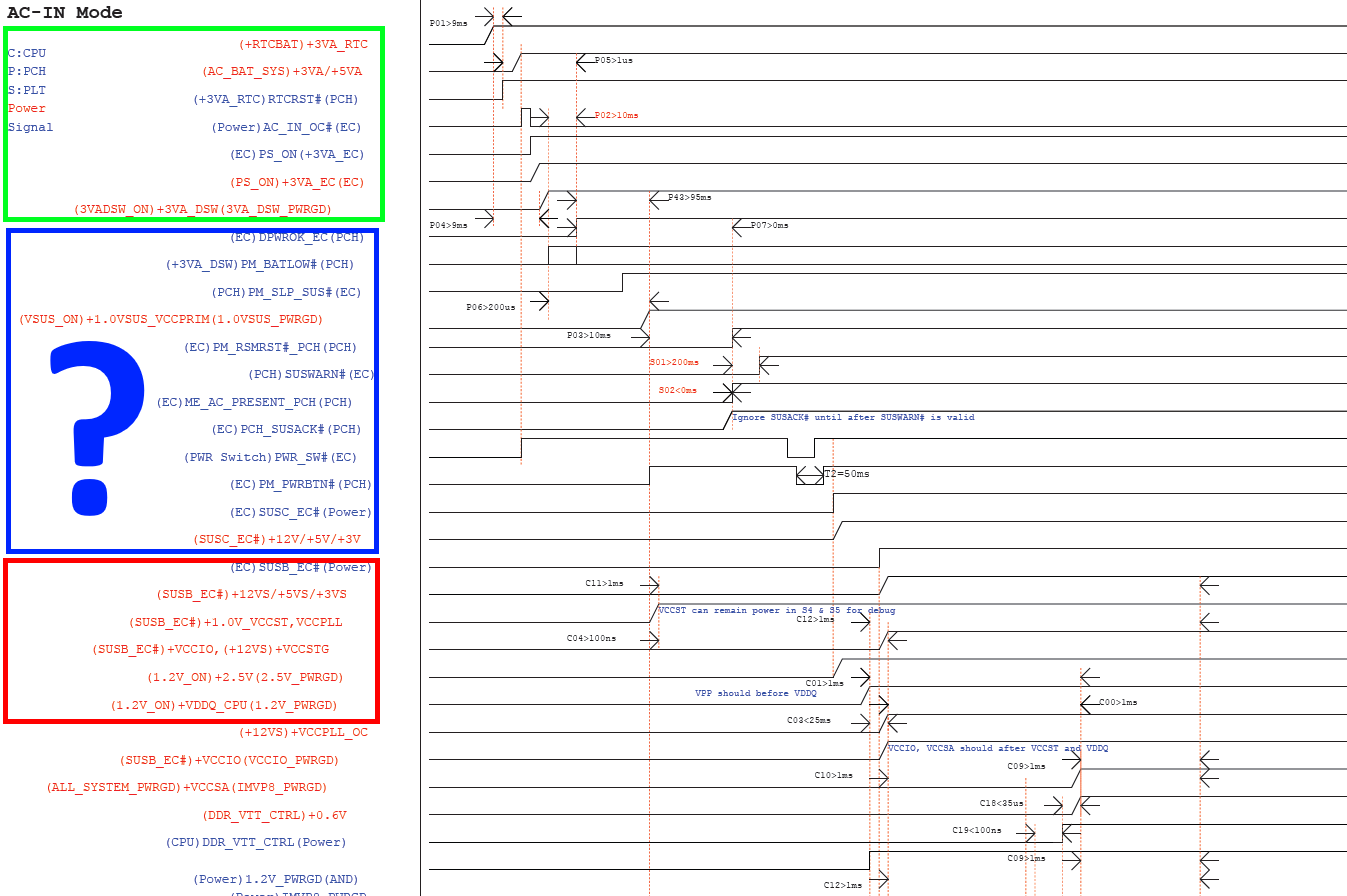 AC-IN Mode
C:CPU
P:PCH
S:PLT
Power
Signal
(+RTCBAT)+3VA_RTC
(AC_BAT_SYS)+3VA/+5VA
(+3VA_RTC)RTCRST#(PCH)
(Power)AC_IN_OC#(EC)
(EC)PS_ON(+3VA_EC)
(PS_ON)+3VA_EC(EC)
(3VADSW_ON)+3VA_DSW(3VA_DSW_PWRGD)
(EC)DPWROK_EC(PCH)
(+3VA_DSW)PM_BATLOW#(PCH)
(PCH)PM_SLP_SUS#(EC)
(VSUS_ON)+1.0VSUS_VCCPRIM(1.0VSUS_PWRGD)
(EC)PM_RSMRST#_PCH(PCH)
(PCH)SUSWARN#(EC)
(EC)ME_AC_PRESENT_PCH(PCH)
(EC)PCH_SUSACK#(PCH)
(PWR Switch)PWR_SW#(EC)
(EC)PM_PWRBTN#(PCH)
(EC)SUSC_EC#(Power)
(SUSC_EC#)+12V/+5V/+3V
?
(EC)SUSB_EC#(Power)
(SUSB_EC#)+12VS/+5VS/+3VS
(SUSB_EC#)+1.0V_VCCST,VCCPLL
(SUSB_EC#)+VCCIO,(+12VS)+VCCSTG
(1.2V_ON)+2.5V(2.5V_PWRGD)
(1.2V_ON)+VDDQ_CPU(1.2V_PWRGD)
(+12VS)+VCCPLL_OC
(SUSB_EC#)+VCCIO(VCCIO_PWRGD)
(ALL_SYSTEM_PWRGD)+VCCSA(IMVP8_PWRGD)
(DDR_VTT_CTRL)+0.6V
(CPU)DDR_VTT_CTRL(Power)
(Power)1.2V_PWRGD(AND)
P01>9ms
P05>1us
P02>10ms
P43>95ms
P04>9ms
P07>0ms
P06>200us
P03>10ms
S01>200ms
S02<0ms
Ignore SUSACK# until after SUSWARN# is valid
T2=50ms
C11>1ms
VCCST can remain power in S4 & S5 for debug
C12>1ms
C04>100ns
C01>1ms
VPP should before VDDQ
C00>1ms
C03<25ms
VCCIO, VCCSA should after VCCST and VDDQ
C09>1ms
C10>1ms
C18<35us
C19<100ns
C09>1ms
C12>1ms